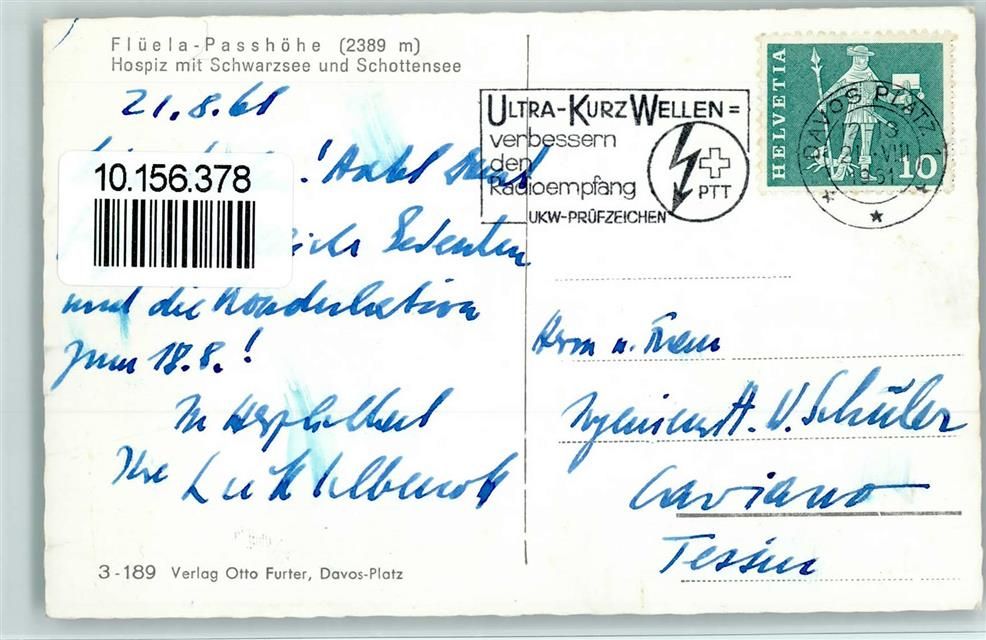 Flüela-Passhöhe (2389 m)
Hospiz mit Schwarzsee und Schottensee
21.8.61
! Habt
10.156.378
Gedenken
und die Kondolation
zum 18.8.!
In Herzlichkeit
Ihre
3-189 Verlag Otto Furter, Davos-Platz
ULTRA-KURZWELLEN=
verbessern
den
Radioempfang
UKW-PRÜFZEICHEN
PTT
HELVETIA
10
DAVOS PLATZ 1
VIII
1961
Herrn u. Frau
Ingenieur A. W. Schüler
Caviano
Tessin